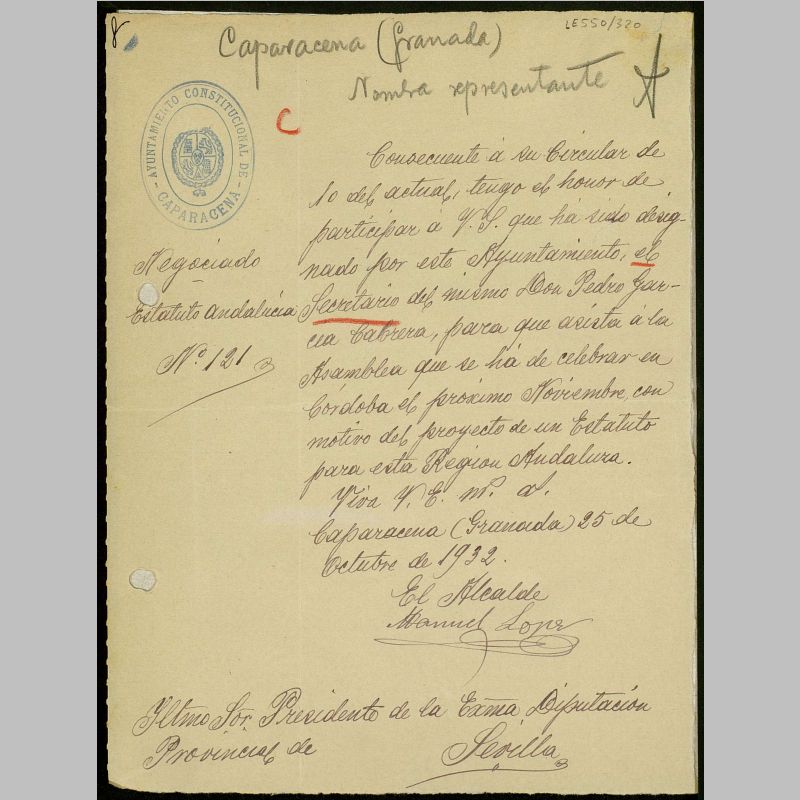 8
LE550/320
Caparacena (Granada)
Nombra representante
C
AYUNTAMIENTO CONSTITUCIONAL DE
CAPARACENA
Negociado
Estatuto Andalucia
Nº 121
Consecuente á su Circular de
10 del actual, tengo el honor de
participar á V.S. que há sido desig-
nado por este Ayuntamiento, el
Secretario del mismo Don Pedro Gar-
cia Cabrera, para que asista á la
Asamblea que se há de celebrar en
Córdoba el próximo Noviembre, con
motivo del proyecto de un Estatuto
para esta Region Andaluza.
Viva V. E. m. a.
Caparacena (Granada) 25 de
Octubre de 1932.
El Alcalde
Manuel Lopez
Yltmo Sor. Presidente de la Exma Diputación
Provincial de Sevilla